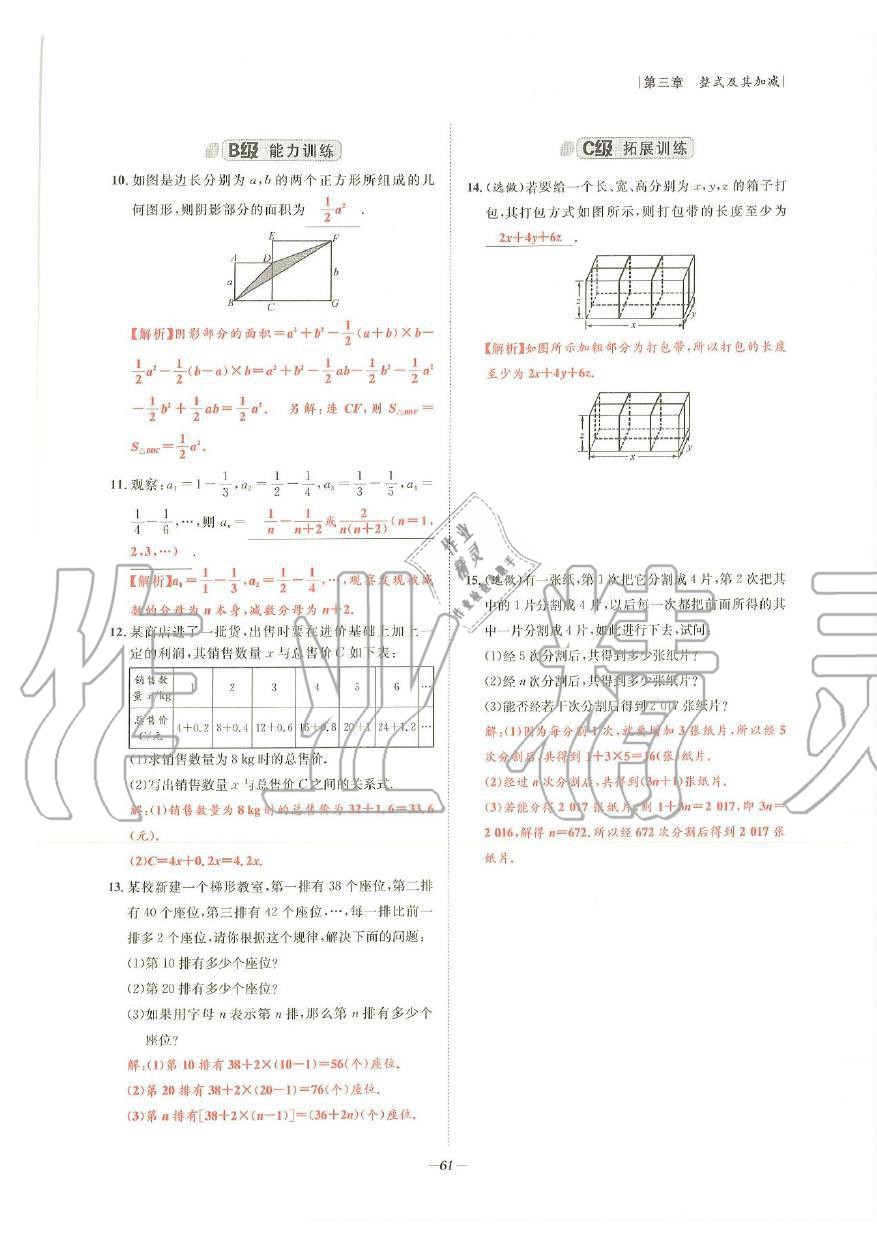 第三章 整式及其加减
B级 能力训练
10. 如图是边长分别为 a,b 的两个正方形所组成的几
何图形,则阴影部分的面积为 1/2 a² .
E F
A D
a b
B C G
【解析】阴影部分的面积=a²+b²-1/2(a+b)×b-
1/2 a²-1/2(b-a)×b=a²+b²-1/2 ab-1/2 b²-1/2 a²
-1/2 b²+1/2 ab=1/2 a². 另解:连 CF,则 S△BDF=
S△BDC=1/2 a².
11. 观察:a₁=1-1/3,a₂=1/2-1/4,a₃=1/3-1/5,a₄=
1/4-1/6,…,则 aₙ= 1/n-1/(n+2)或2/(n(n+2))(n=1,
2,3,…) .
【解析】a₁=1/1-1/3,a₂=1/2-1/4,…,观察发现被减
数的分母为 n 本身,减数分母为 n+2.
12. 某商店进了一批货,出售时要在进价基础上加上一
定的利润,其销售数量 x 与总售价 C 如下表:
销售数量 x/kg 1 2 3 4 5 6 …
总售价 C/元 4+0.2 8+0.4 12+0.6 16+0.8 20+1 24+1.2 …
(1)求销售数量为 8 kg 时的总售价.
(2)写出销售数量 x 与总售价 C 之间的关系式.
解:(1)销售数量为 8 kg 时的总售价为 32+1.6=33.6
(元).
(2)C=4x+0.2x=4.2x.
13. 某校新建一个梯形教室,第一排有 38 个座位,第二排
有 40 个座位,第三排有 42 个座位,…,每一排比前一
排多 2 个座位,请你根据这个规律,解决下面的问题:
(1)第 10 排有多少个座位?
(2)第 20 排有多少个座位?
(3)如果用字母 n 表示第 n 排,那么第 n 排有多少个
座位?
解:(1)第 10 排有 38+2×(10-1)=56(个)座位.
(2)第 20 排有 38+2×(20-1)=76(个)座位.
(3)第 n 排有[38+2×(n-1)]=(36+2n)(个)座位.
C级 拓展训练
14. (选做)若要给一个长、宽、高分别为 x,y,z 的箱子打
包,其打包方式如图所示,则打包带的长度至少为
2x+4y+6z .
z x y
【解析】如图所示加粗部分为打包带,所以打包的长度
至少为 2x+4y+6z.
z x y
15. (选做)有一张纸,第 1 次把它分割成 4 片,第 2 次把其
中的 1 片分割成 4 片,以后每一次都把前面所得的其
中一片分割成 4 片,如此进行下去,试问:
(1)经 5 次分割后,共得到多少张纸片?
(2)经 n 次分割后,共得到多少张纸片?
(3)能否经若干次分割后得到 2 017 张纸片?
解:(1)因为每分割 1 次,就要增加 3 张纸片,所以经 5
次分割后,共得到 1+3×5=16(张)纸片.
(2)经过 n 次分割后,共得到(3n+1)张纸片.
(3)若能分得 2 017 张纸片,则 1+3n=2 017,即 3n=
2 016,解得 n=672.所以经 672 次分割后得到 2 017 张
纸片.
作业精灵
作业
精灵
—61—